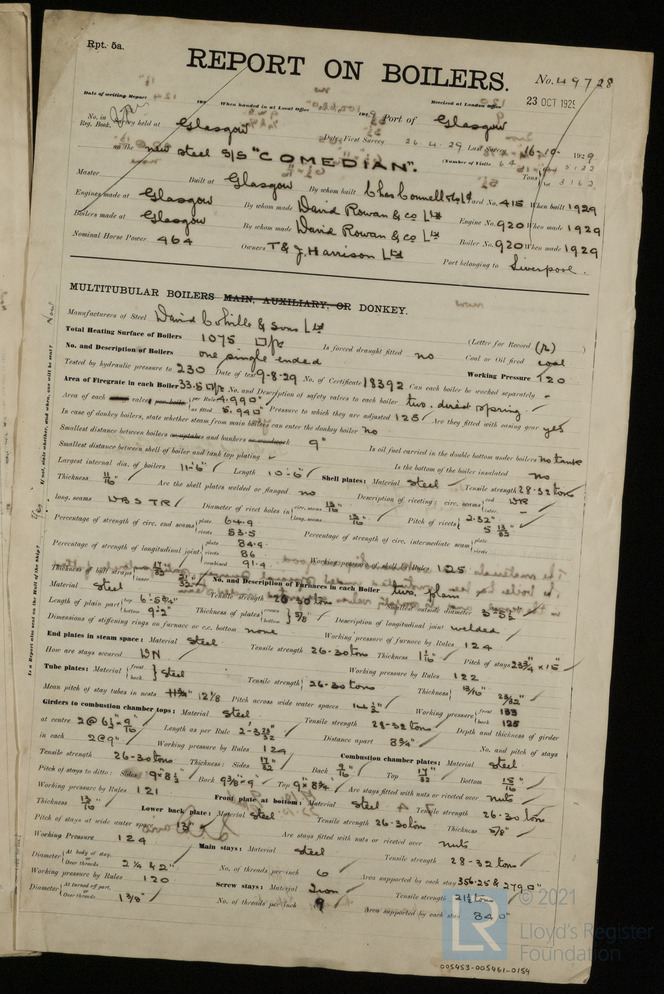 Rpt. 5a.
REPORT ON BOILERS.
No. 49728
23 OCT 1929
Date of writing Report When handed in at Local Office Port of Glasgow Received at London Office
No. in Reg. Book. Survey held at Glasgow Date, First Survey 26.4.29 Last Survey 16-10-1929
on the new steel S/S "COMEDIAN". (Number of Visits 64) Tons
Master Built at Glasgow By whom built Chas Connell & Co Ltd Yard No. 415 When built 1929
Engines made at Glasgow By whom made David Rowan & Co Ltd Engine No. 920 When made 1929
Boilers made at Glasgow By whom made David Rowan & Co Ltd Boiler No. 920 When made 1929
Nominal Horse Power 464 Owners T & J. Harrison Ltd Port belonging to Liverpool.
MULTITUBULAR BOILERS MAIN, AUXILIARY, OR DONKEY.
Manufacturers of Steel David Colville & Sons Ltd
(Letter for Record (r) )
Total Heating Surface of Boilers 1075 □/ Is forced draught fitted no Coal or Oil fired coal
No. and Description of Boilers one single ended Working Pressure 120
Tested by hydraulic pressure to 230 Date of test 9-8-29 No. of Certificate 18392 Can each boiler be worked separately -
Area of Firegrate in each Boiler 33.5 No. and Description of safety valves to each boiler two. direct spring.
Area of each valve per Rule 4.990" as fitted 5.940" Pressure to which they are adjusted 125 Are they fitted with easing gear yes
In case of donkey boilers, state whether steam from main boilers can enter the donkey boiler no
Smallest distance between boilers or uptakes and bunkers or woodwork 9" Is oil fuel carried in the double bottom under boilers no tank
Smallest distance between shell of boiler and tank top plating Is the bottom of the boiler insulated no
Largest internal dia. of boilers 11-6" Length 10-6" Shell plates: Material Steel Tensile strength 28-32 tons
Thickness 11/16 Are the shell plates welded or flanged no Description of riveting: circ. seams
long. seams DBSTR Diameter of rivet holes in circ. seams long. seams Pitch of rivets 2.32"
Percentage of strength of circ. end seams plate 64.9 rivets 53.5 Percentage of strength of circ. intermediate seam plate rivets
Percentage of strength of longitudinal joint plate 84.9 rivets 86 combined 91.4 Working pressure of shell by Rules 125
Thickness of butt straps No. and Description of Furnaces in each Boiler two. plain
Material Steel Tensile strength 26-30 tons Smallest outside diameter
Length of plain part top bottom Thickness of plates crown bottom 5/8" Description of longitudinal joint welded
Dimensions of stiffening rings on furnace or c.c. bottom none Working pressure of furnace by Rules 124
End plates in steam space: Material Steel Tensile strength 26-30 tons Thickness 1 1/16 Pitch of stays 23 3/4 x 15
How are stays secured DN Working pressure by Rules 122
Tube plates: Material front back Steel Tensile strength 26-30 tons Thickness 13/16" 23/32"
Mean pitch of stay tubes in nests 12 1/8 Pitch across wide water spaces 14 1/2" Working pressure front 133 back 125
Girders to combustion chamber tops: Material Steel Tensile strength 28-32 tons Depth and thickness of girder
at centre Length as per Rule Distance apart 8 3/4" No. and pitch of stays
in each 2 @ 9" Working pressure by Rules 124 Combustion chamber plates: Material Steel
Tensile strength 26-30 tons Thickness: Sides 17/32 Back 9/16 Top 17/32 Bottom 15/16
Pitch of stays to ditto: Sides 9" x 8 1/2 Back 9 3/8 x 9" Top 9" x 8 3/4" Are stays fitted with nuts or riveted over nuts
Working pressure by Rules 121 Front plate at bottom: Material Steel Tensile strength 26-30 tons
Thickness 13/16 Lower back plate: Material Steel Tensile strength 26-30 tons Thickness 5/8"
Pitch of stays at wide water space Are stays fitted with nuts or riveted over nuts
Working Pressure 124 Main stays: Material Steel Tensile strength 28-32 tons
Diameter At body of stay, or Over threads. 2 1/4 & 2" No. of threads per inch 6 Area supported by each stay 356.25 & 279"
Working pressure by Rules 120 Screw stays: Material Iron Tensile strength 21 1/2 tons
Diameter At turned off part, or Over threads. 1 3/8" No. of threads per inch 9 Area supported by each stay 84"
© 2021
Lloyd's Register
Foundation
LR
005453-005461-0154